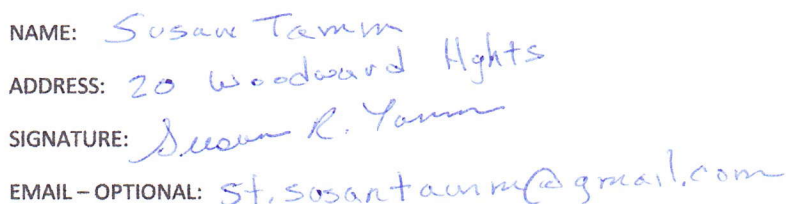 NAME: Susan Tamm
ADDRESS: 20 Woodward Hghts
SIGNATURE: Susan R. Tamm
EMAIL – OPTIONAL: st.susantamm@gmail.com